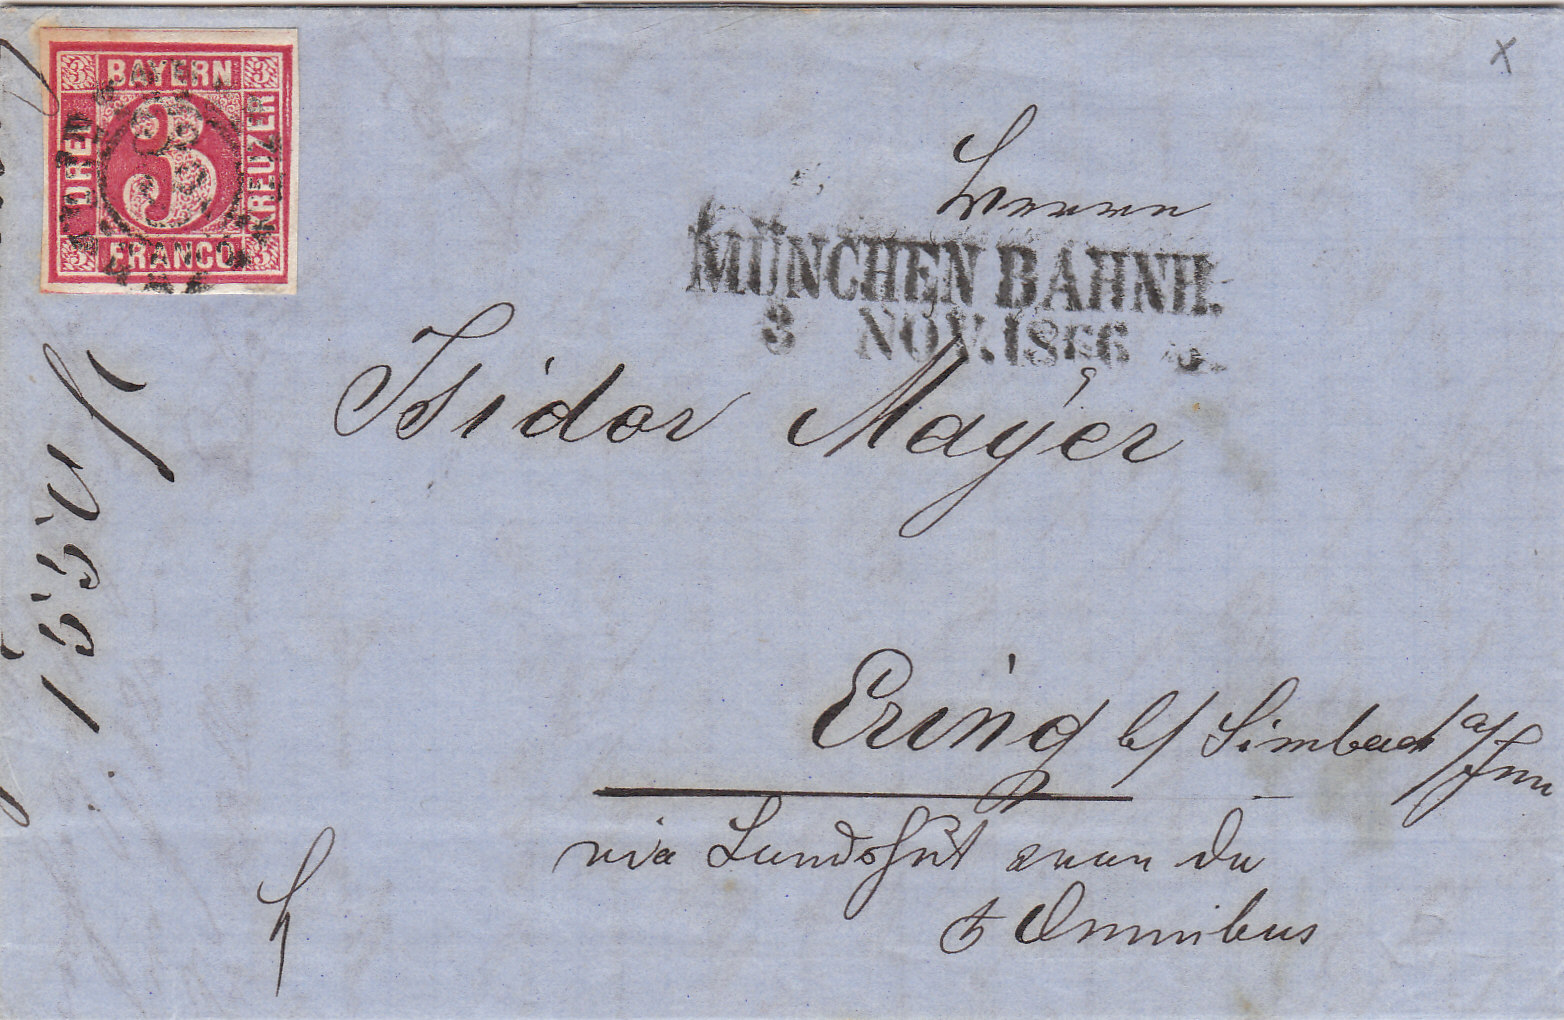 BAYERN
DREI
KREUZER
FRANCO
3
3
3
3
3
Herrn
MÜNCHEN BAHNH.
3 NOV. 1866
Isidor Mayer
Ering b/ Simbach a/Inn
via Landshut
Omnibus